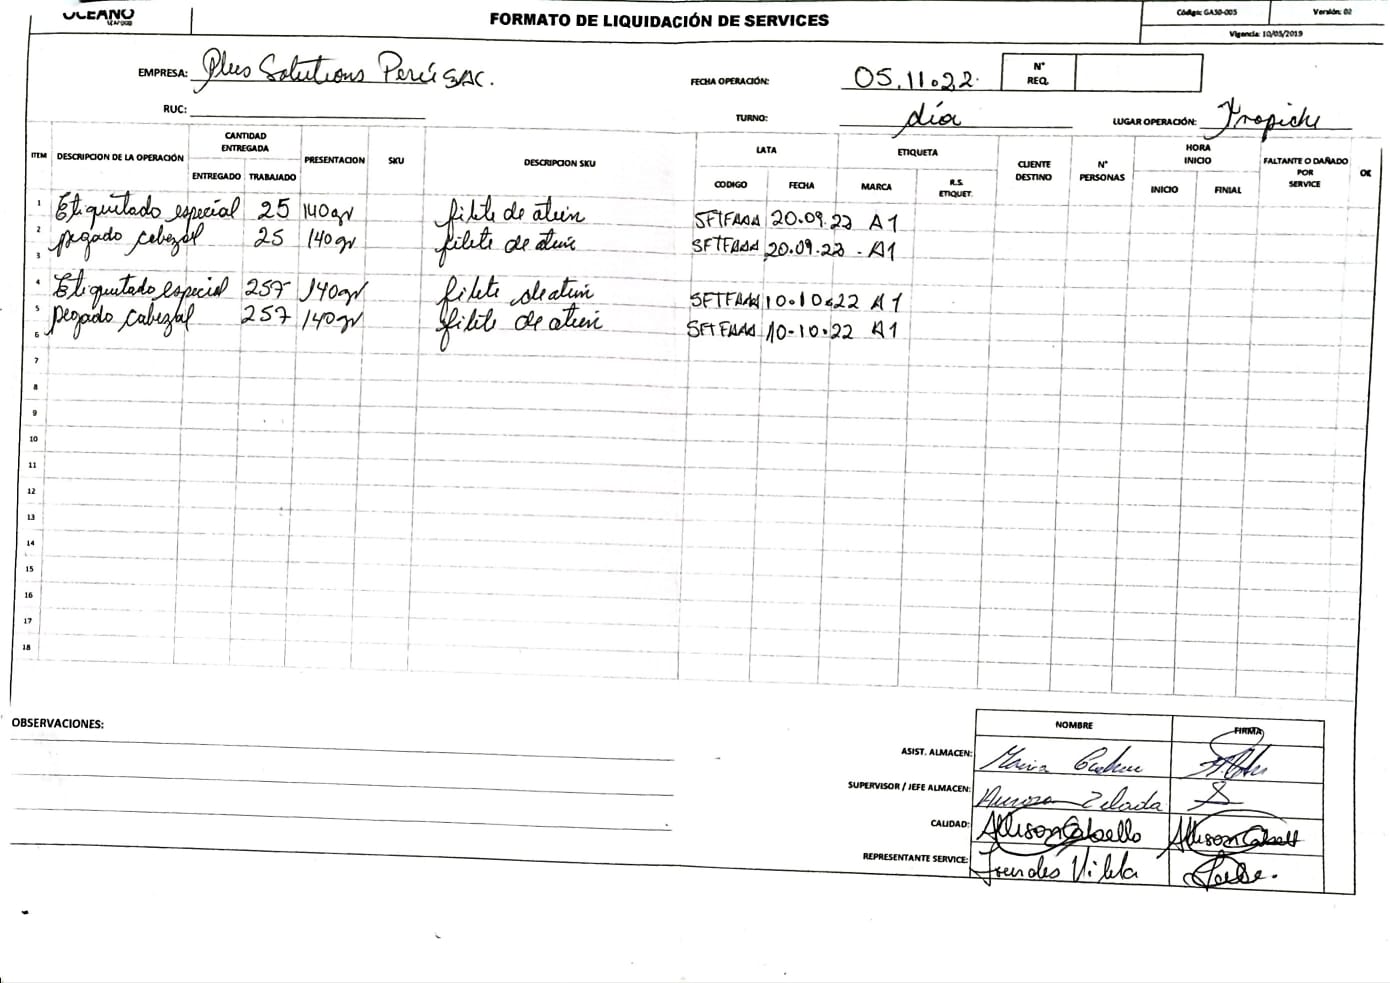 OCEANO
SEAFOOD
FORMATO DE LIQUIDACIÓN DE SERVICES
Código: GA50-005
Versión: 02
Vigencia: 10/05/2019
EMPRESA: Plus Solutions Perú SAC.
FECHA OPERACIÓN: 05.11.22.
N° REQ.
RUC:
TURNO: día
LUGAR OPERACIÓN: Trapiche
ITEM DESCRIPCION DE LA OPERACIÓN CANTIDAD ENTREGADA PRESENTACION SKU DESCRIPCION SKU LATA ETIQUETA CLIENTE DESTINO N° PERSONAS HORA INICIO FALTANTE O DAÑADO POR SERVICE OK
ENTREGADO TRABAJADO CODIGO FECHA MARCA R.S. ETIQUET. INICIO FINIAL
1 Etiquetado especial 25 140gr filete de atún SFTFAAA 20.09.22 A1
2 pegado cabezal 25 140gr filete de atún SFTFAAA 20.09.22 - A1
3
4 Etiquetado especial 257 140gr filete de atún SFTFAAA 10.10.22 A1
5 pegado cabezal 257 140gr filete de atún SFTFAAA 10-10.22 A1
6
7
8
9
10
11
12
13
14
15
16
17
18
OBSERVACIONES:
NOMBRE FIRMA
ASIST. ALMACEN: Maria
SUPERVISOR / JEFE ALMACEN: Aurora Zelada
CALIDAD: Allison Cabello Allison Cabell
REPRESENTANTE SERVICE: Lourdes Vilela